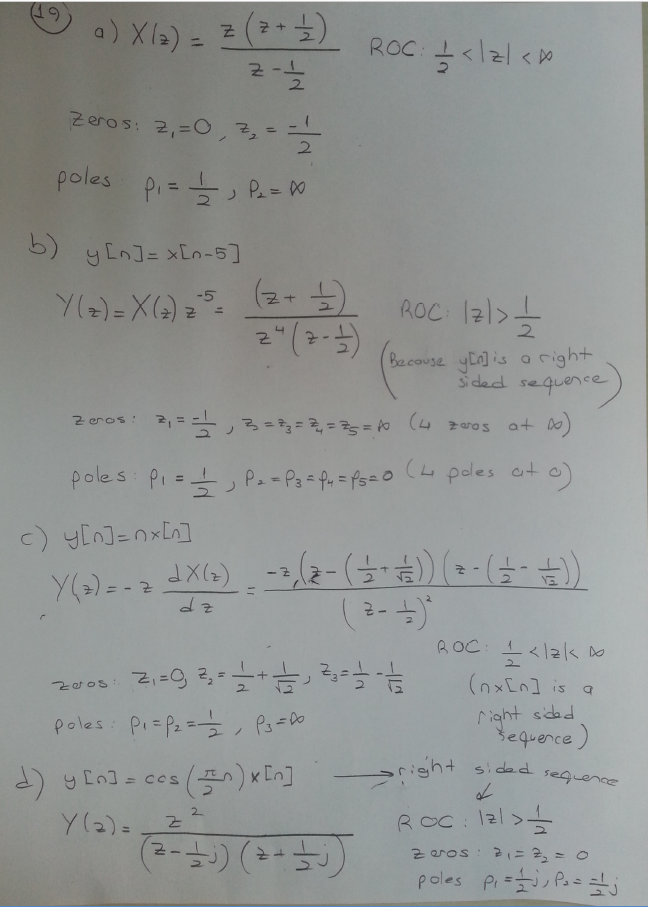 19)
a) X(z) = z(z + 1/2) / (z - 1/2) ROC: 1/2 < |z| < ∞
zeros: z₁=0, z₂ = -1/2
poles: p₁ = 1/2, p₂ = ∞
b) y[n] = x[n-5]
Y(z) = X(z) z⁻⁵ = (z + 1/2) / (z⁴(z - 1/2)) ROC: |z| > 1/2
(Because y[n] is a right
sided sequence)
zeros: z₁ = -1/2, z₂=z₃=z₄=z₅=∞ (4 zeros at ∞)
poles: p₁ = 1/2, p₂=p₃=p₄=p₅=0 (4 poles at 0)
c) y[n]=nx[n]
Y(z) = -z dX(z)/dz = -z(z - (1/2 + 1/√2))(z - (1/2 - 1/√2)) / (z - 1/2)²
ROC: 1/2 < |z| < ∞
zeros: z₁=0, z₂ = 1/2 + 1/√2, z₃ = 1/2 - 1/√2
(nx[n] is a
right sided
sequence)
poles: p₁=p₂=1/2, p₃=∞
d) y[n] = cos(π/2 n) x[n] → right sided sequence
Y(z) = z² / ((z - 1/2 j)(z + 1/2 j)) ROC: |z| > 1/2
zeros: z₁ = z₂ = 0
poles p₁ = 1/2 j, p₂ = -1/2 j